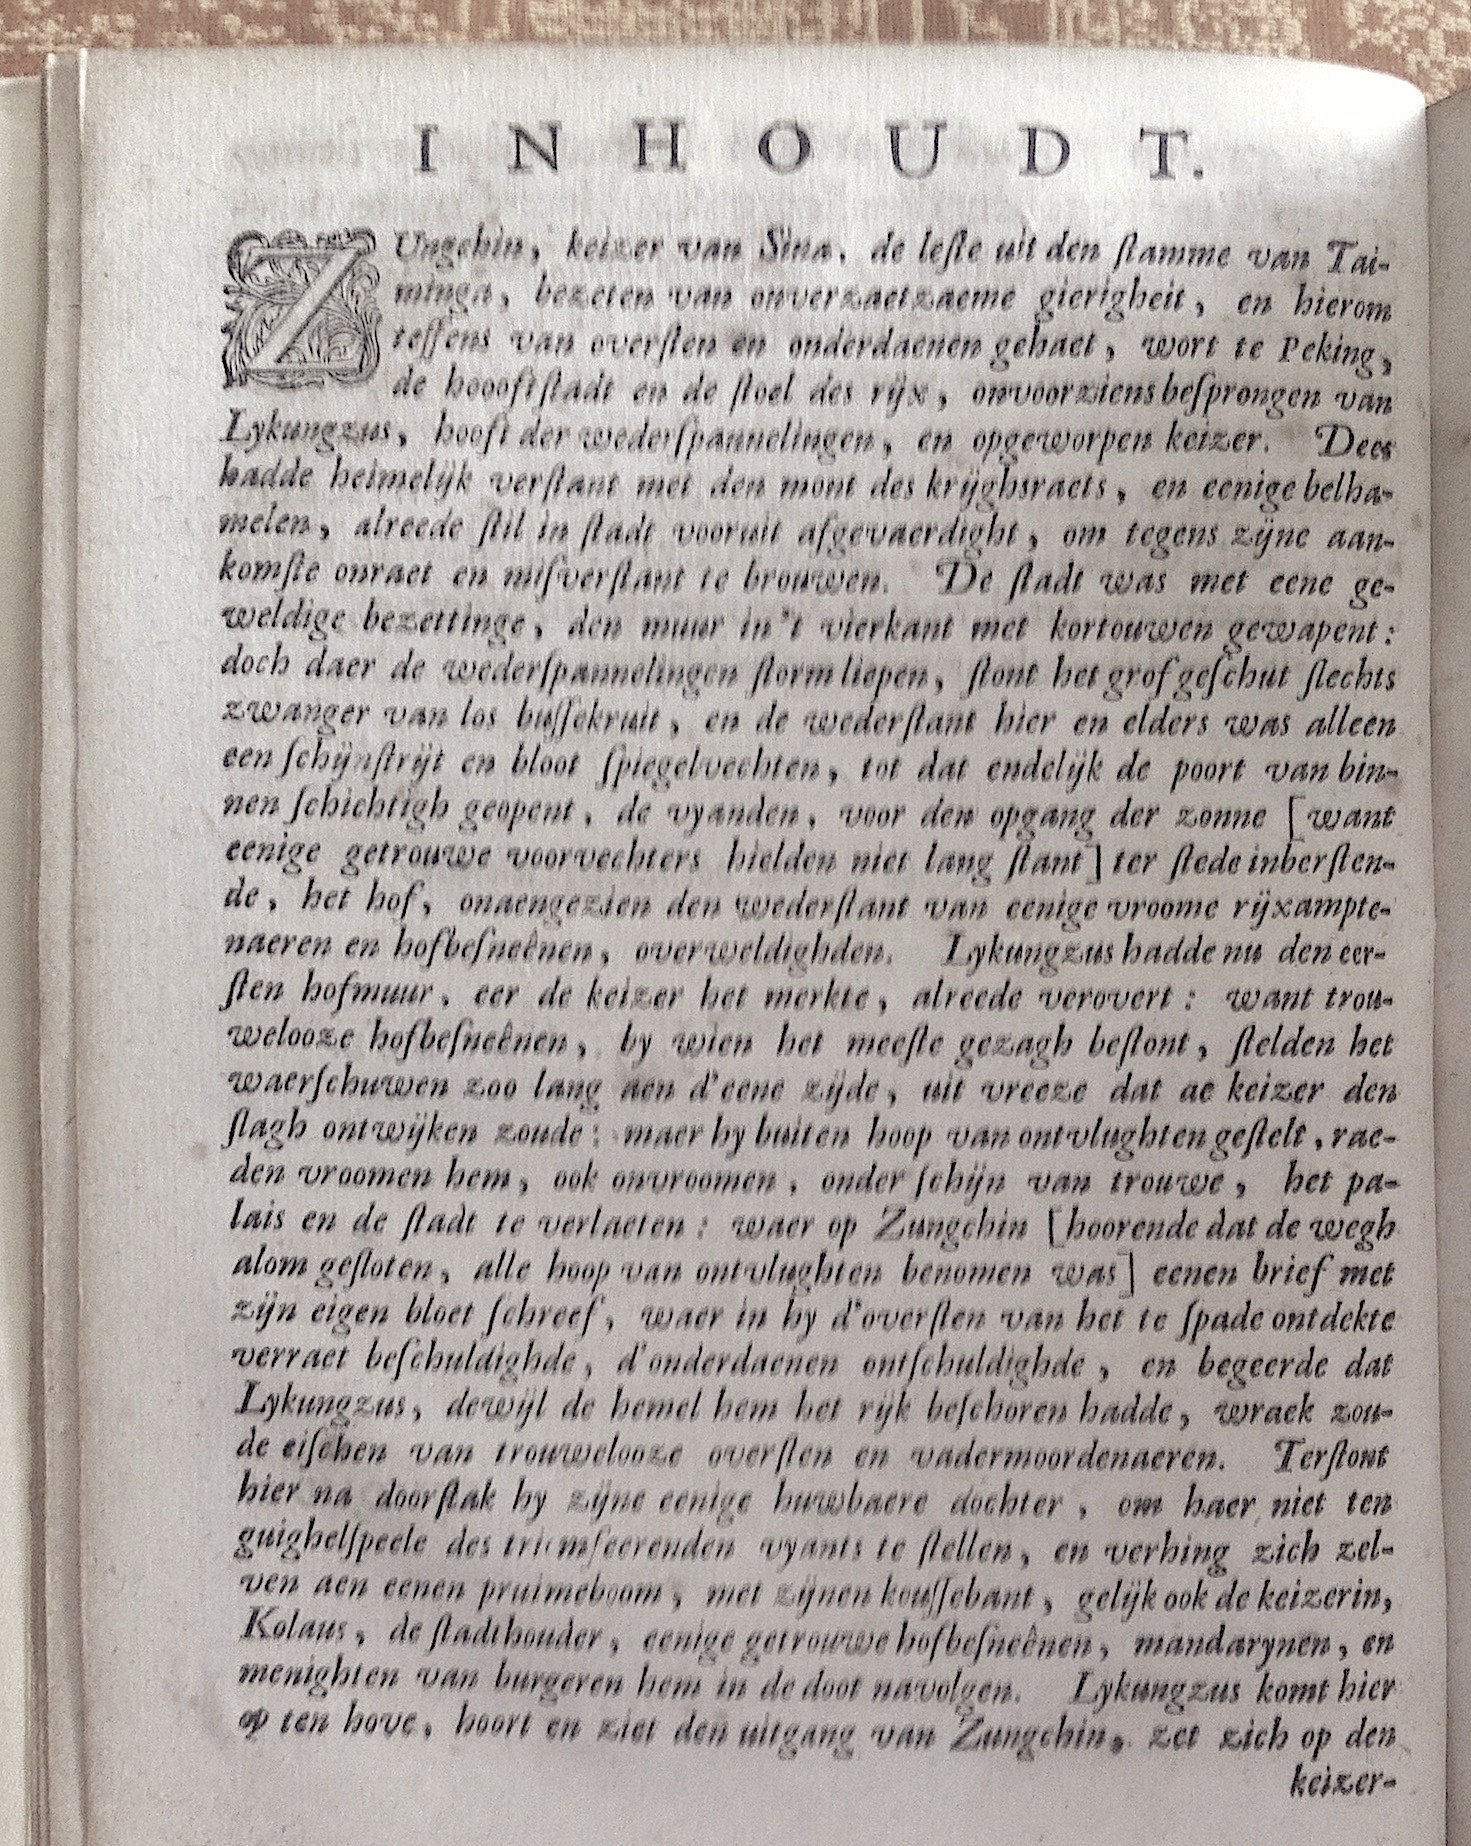 INHOUDT.
ZUngchin, keizer van Sina, de leſte uit den ſtamme van Tai-
minga, bezeten van onverzaetzaeme gierigheit, en hierom
teſſens van overſten en onderdaenen gehaet, wort te Peking,
de hoooftſtadt en de ſtoel des rijx, onvoorziens beſprongen van
Lykungzus, hooft der wederſpannelingen, en opgeworpen keizer. Dees
hadde heimelijk verſtant met den mont des krijghsraets, en eenige belha-
melen, alreede ſtil in ſtadt vooruit afgevaerdight, om tegens zijne aan-
komſte onraet en miſverſtant te brouwen. De ſtadt was met eene ge-
weldige bezettinge, den muur in 't vierkant met kortouwen gewapent:
doch daer de wederſpannelingen ſtorm liepen, ſtont het grof geſchut ſlechts
zwanger van los buſſekruit, en de wederſtant hier en elders was alleen
een ſchijnſtrijt en bloot ſpiegelvechten, tot dat endelijk de poort van bin-
nen ſchichtigh geopent, de vyanden, voor den opgang der zonne [want
eenige getrouwe voorvechters hielden niet lang ſtant] ter ſtede inberſten-
de, het hof, onaengezien den wederſtant van eenige vroome rijxampte-
naeren en hofbeſneênen, overweldighden. Lykungzus hadde nu den eer-
ſten hofmuur, eer de keizer het merkte, alreede verovert: want trou-
welooze hofbeſneênen, by wien het meeſte gezagh beſtont, ſtelden het
waerſchuwen zoo lang aen d'eene zijde, uit vreeze dat de keizer den
ſlagh ontwijken zoude: maer hy buiten hoop van ontvlughten geſtelt, rae-
den vroomen hem, ook onvroomen, onder ſchijn van trouwe, het pa-
lais en de ſtadt te verlaeten: waer op Zungchin [hoorende dat de wegh
alom geſloten, alle hoop van ontvlughten benomen was] eenen brief met
zijn eigen bloet ſchreef, waer in hy d'overſten van het te ſpade ontdekte
verraet beſchuldighde, d'onderdaenen ontſchuldighde, en begeerde dat
Lykungzus, dewijl de hemel hem het rijk beſchoren hadde, wraek zou-
de eiſchen van trouwelooze overſten en vadermoordenaeren. Terſtont
hier na doorſtak hy zijne eenige huwbaere dochter, om haer niet ten
guighelſpeele des triomfeerenden vyants te ſtellen, en verhing zich zel-
ven aen eenen pruimeboom, met zijnen kouſſebant, gelijk ook de keizerin,
Kolaus, de ſtadthouder, eenige getrouwe hofbeſneênen, mandarynen, en
menighten van burgeren hem in de doot navolgen. Lykungzus komt hier
op ten hove, hoort en ziet den uitgang van Zungchin, zet zich op den
keizer-